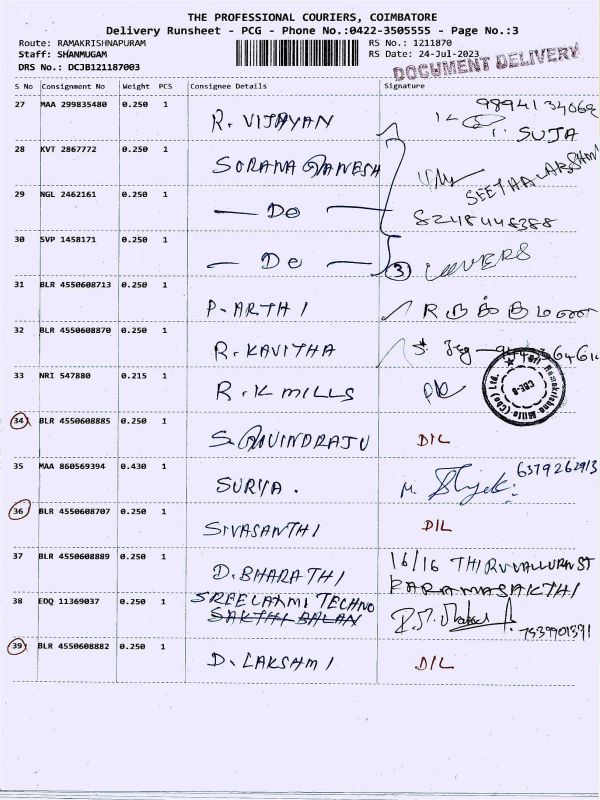 THE PROFESSIONAL COURIERS, COIMBATORE
Delivery Runsheet - PCG - Phone No.:0422-3505555 - Page No.:3
Route: RAMAKRISHNAPURAM RS No.: 1211870
Staff: SHANMUGAM RS Date: 24-Jul-2023
DRS No.: DCJB121187003 DOCUMENT DELIVERY
S No Consignment No Weight PCS Consignee Details Signature
27 MAA 299835480 0.250 1 R. VIJAYAN 9894134069
SUJA
28 KVT 2867772 0.250 1 SORANA GANESH
29 NGL 2462161 0.250 1 — Do — 8248448388
30 SVP 1458171 0.250 1 — Do — 3 COVERS
31 BLR 4550608713 0.250 1 P. ARTHI
32 BLR 4550608870 0.250 1 R. KAVITHA
33 NRI 547880 0.215 1 R. K MILLS
Sri Ramakrishna Mills (Cbe) Ltd.
CBE-6
34 BLR 4550608885 0.250 1 S. GOVINDRAJU D/L
35 MAA 860569394 0.430 1 SURYA. M. 6379262913
36 BLR 4550608707 0.250 1 SIVASANTHI D/L
37 BLR 4550608889 0.250 1 D. BHARATHI 16/16 THIRUVALLUVAR ST
PARAMASAKTHI
38 EDQ 11369037 0.250 1 SREELAXMI TECHNO
SAKTHI BALAN 7539901591
39 BLR 4550608882 0.250 1 D. LAKSHMI D/L